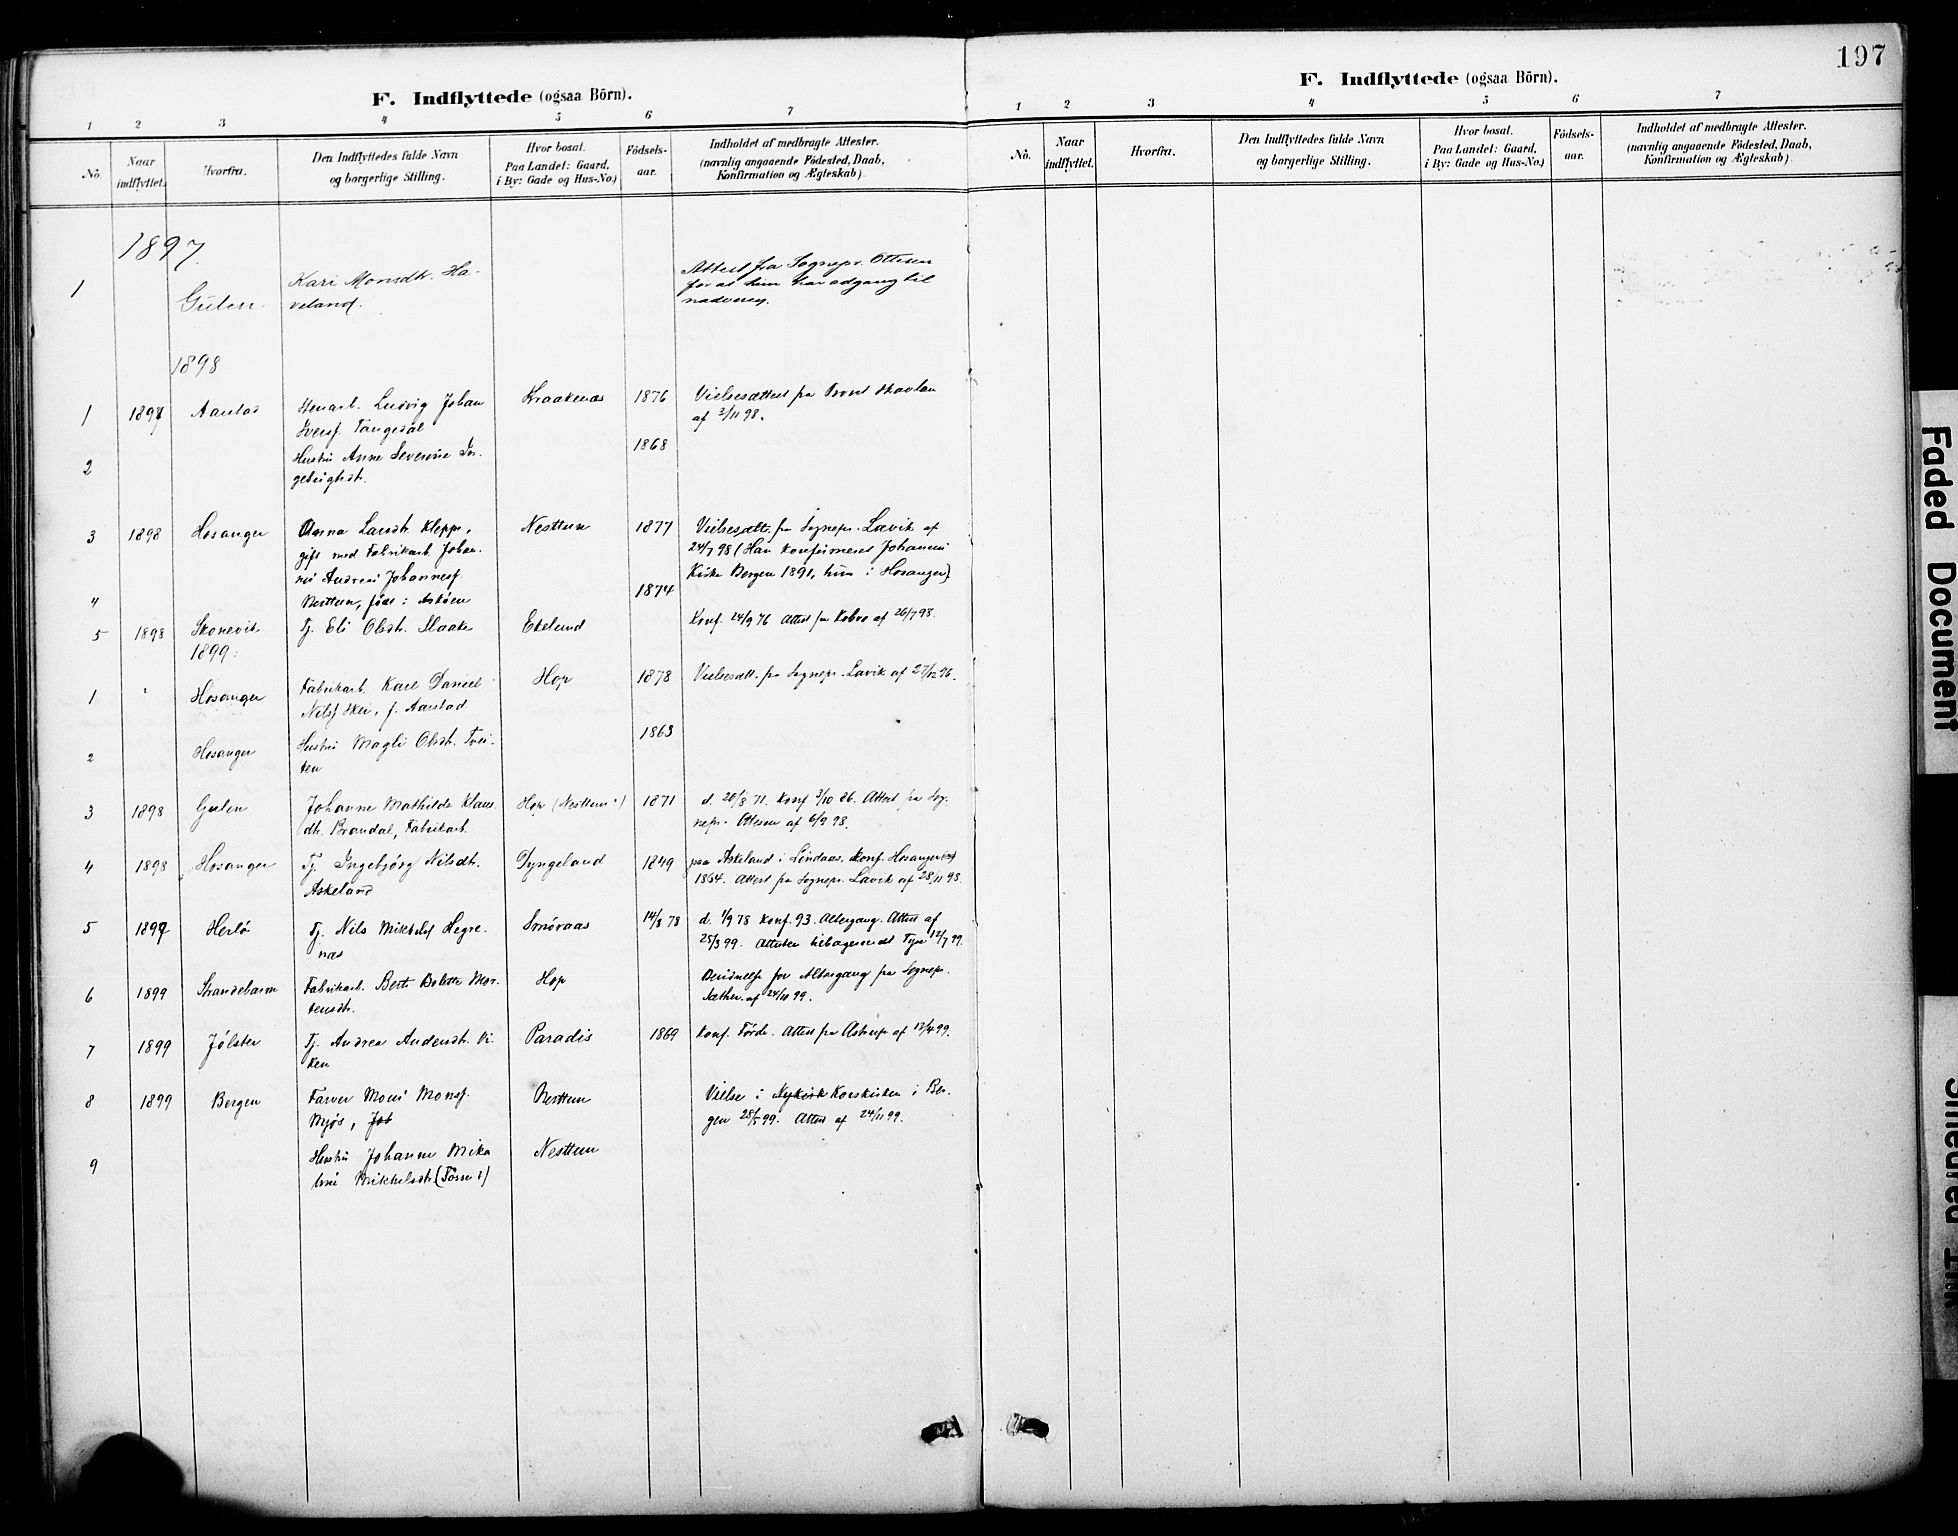 197
F. Indflyttede (ogsaa Börn).
1 2 3 4 5 6 7
No.
Naar indflyttet.
Hvorfra.
Den Indflyttedes fulde Navn
og borgerlige Stilling.
Hvor bosat.
Paa Landet: Gaard,
i By: Gade og Hus-No.)
Födsels-
aar.
Indholdet af medbragte Attester.
(navnlig angaaende Födested, Daab,
Konfirmation og Ægteskab)
1897.
1 Gulen Kari Monsdtr. Ha- Attest fra Sognepr. Ottesen
veland. for at hun har adgang til
nadveren.
1898
1 1897 Aarstad Stenarb. Ludvig Johan Kraakenes 1876 Vielsesattest fra Provst Skavlan
Iversf. Tangedal af 3/11 98.
2 Hustru Anne Severine In- 1868
gebrigtsdtr.
3 1898 Hosanger Anna Larsdtr. Klepp, Nesttun 1877 Vielsesatt. fra Sognepr. Lavik af
gift med Fabrikarb. Johan- 24/7 98 (Han konfirmeret Johannes
nes Andreas Johannesf. Kirke Bergen 1891, hun i Hosanger)
4 Nesttun, föd i Askøen 1874
5 1898 Skonevik Tj. Eli Olsdtr. Flaake Ekeland Konf. 24/9 76 Attest fra Kobro af 26/7 98.
1899:
1 " Hosanger Fabrikarb. Karl Daniel Hop 1878 Vielsesatt. fra Sognepr. Lavik af 27/12 96.
Nilsf. Skei, f. Aarstad
2 Hosanger Hustru Magli Olsdtr. Tvei- 1863
ten
3 1898 Gulen Johanne Mathilde Klaus- Hop (Nesttun?) 1871 d. 20/8 71. Konf. 3/10 86. Attest fra Sog-
dtr. Brandal, Fabrikarb. nepr. Ottesen af 6/9 98.
4 1898 Hosanger Tj. Ingebjörg Nilsdtr. Tyngeland 1849 paa Askeland i Lindaas, konf. Hosanger
Askeland 1864. Attest fra Sognepr. Lavik af 28/11 98.
5 1897 Herlö Tj. Nils Mikkelsf. Hegre- Smöraas 14/8 78 d. 1/9 78 Konf. 93. Altergang. Attest af
nes 25/3 99. Attesten tilbagesendt 12/7 99.
6 1899 Strandebarm Fabrikarb. Berte Bolette Mor- Hop Bevidnelse for Altergang fra Sognepr.
tensdtr. Sæther af 24/11 99.
7 1899 Jölster Tj. Andrea Andersdtr. Vi- Paradis 1869 Konf. Förde. Attest fra Astrup af 13/4 99.
ken
8 1899 Bergen Farver Mons Monsf. Nesttun Vielse i Nykirk Korskirken i Ber-
Mjös, Joh gen 28/5 99. Attest af 24/11 99.
9 Hustru Johanne Mika- Nesttun
line Mikkelsdtr.
F. Indflyttede (ogsaa Börn).
1 2 3 4 5 6 7
No.
Naar
indflyttet.
Hvorfra.
Den Indflyttedes fulde Navn
og borgerlige Stilling.
Hvor bosat.
Paa Landet: Gaard,
i By: Gade og Hus-No.)
Födsels-
aar.
Indholdet af medbragte Attester.
(navnlig angaaende Födested, Daab,
Konfirmation og Ægteskab)
Faded Document
Smeared Ink